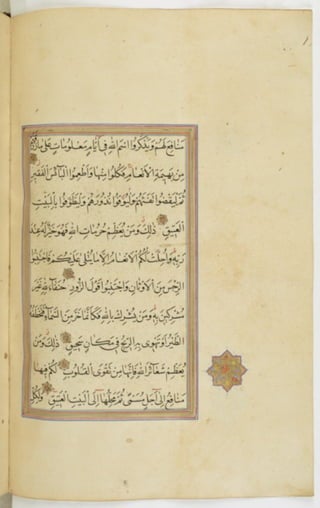 مَنَافِعَ لَهُمْ وَيَذْكُرُوا اسْمَ اللهِ فِي أَيَّامٍ مَعْلُومَاتٍ عَلَى مَا رَزَقَهُمْ
مِنْ بَهِيمَةِ الْأَنْعَامِ فَكُلُوا مِنْهَا وَأَطْعِمُوا الْبَائِسَ الْفَقِيرَ
ثُمَّ لْيَقْضُوا تَفَثَهُمْ وَلْيُوفُوا نُذُورَهُمْ وَلْيَطَّوَّفُوا بِالْبَيْتِ
الْعَتِيقِ ذَلِكَ وَمَنْ يُعَظِّمْ حُرُمَاتِ اللهِ فَهُوَ خَيْرٌ لَهُ عِنْدَ
رَبِّهِ وَأُحِلَّتْ لَكُمُ الْأَنْعَامُ إِلَّا مَا يُتْلَى عَلَيْكُمْ فَاجْتَنِبُوا
الرِّجْسَ مِنَ الْأَوْثَانِ وَاجْتَنِبُوا قَوْلَ الزُّورِ حُنَفَاءَ لِلهِ غَيْرَ
مُشْرِكِينَ بِهِ وَمَنْ يُشْرِكْ بِاللهِ فَكَأَنَّمَا خَرَّ مِنَ السَّمَاءِ فَتَخْطَفُهُ
الطَّيْرُ أَوْ تَهْوِي بِهِ الرِّيحُ فِي مَكَانٍ سَحِيقٍ ذَلِكَ وَمَنْ
يُعَظِّمْ شَعَائِرَ اللهِ فَإِنَّهَا مِنْ تَقْوَى الْقُلُوبِ لَكُمْ فِيهَا
مَنَافِعُ إِلَى أَجَلٍ مُسَمًّى ثُمَّ مَحِلُّهَا إِلَى الْبَيْتِ الْعَتِيقِ وَلِكُلِّ